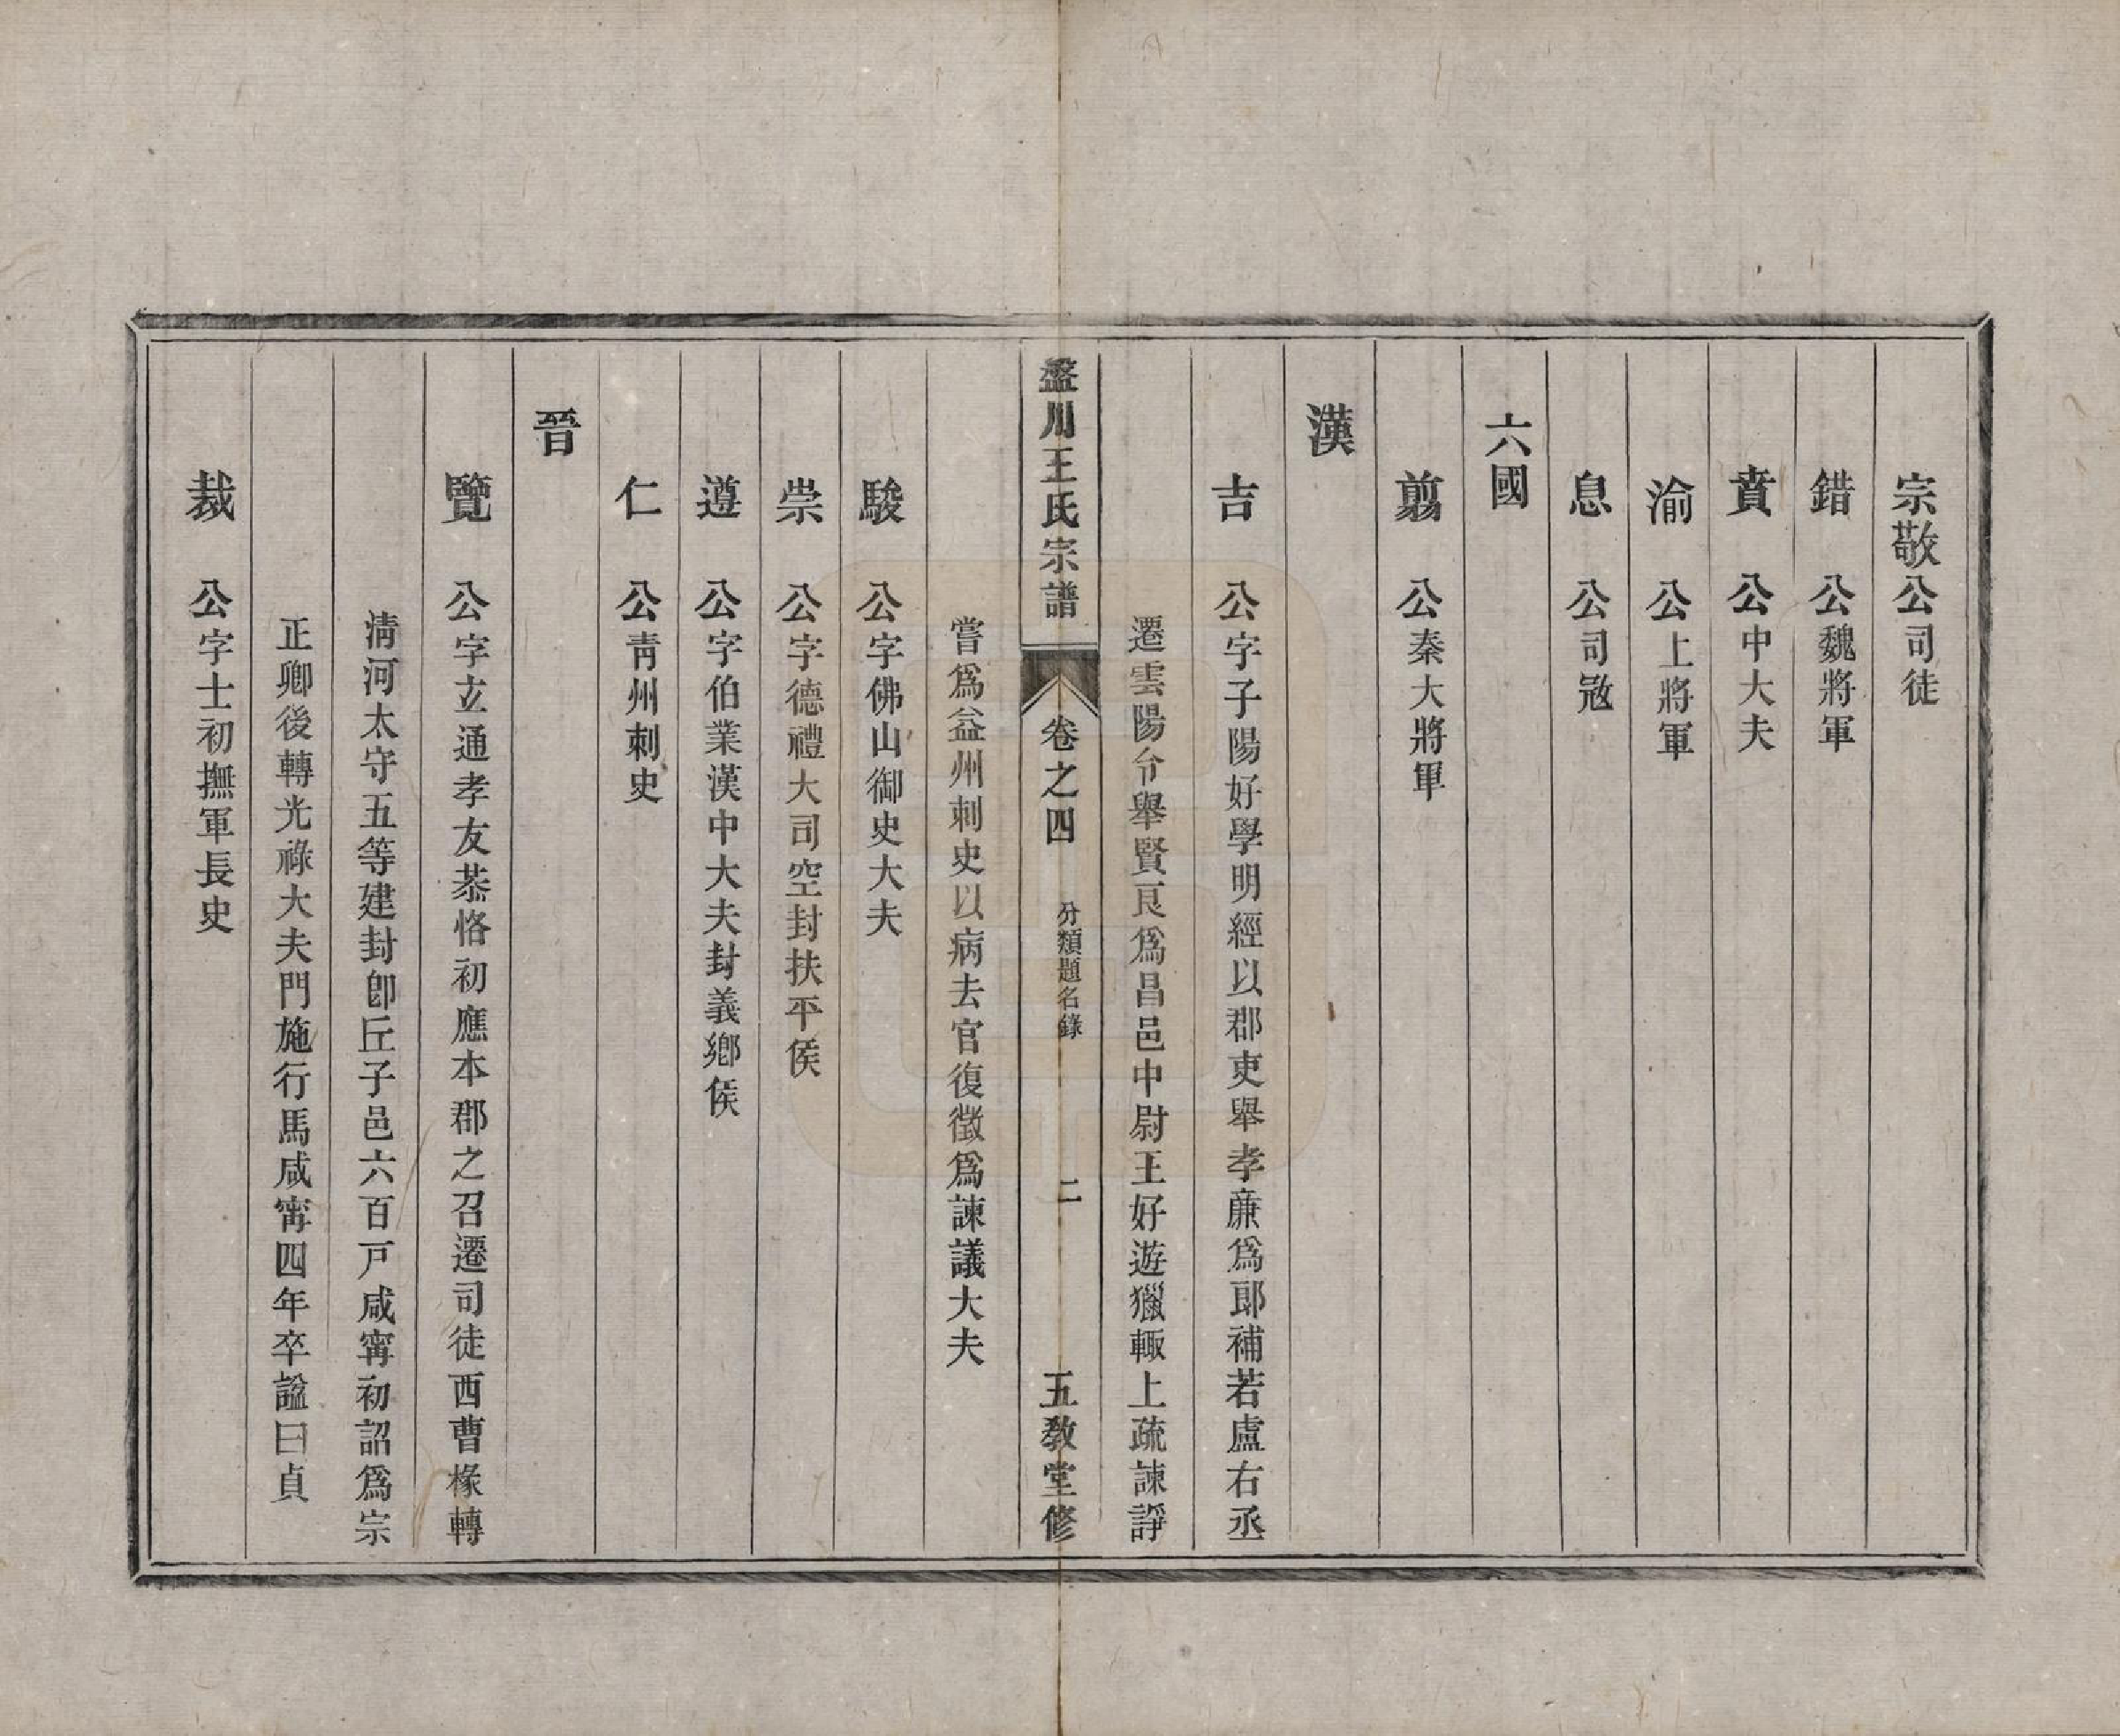 宗敬公司徒
錯　公魏將軍
賁　公中大夫
渝　公上將軍
息　公司寇
六國
翦　公秦大將軍
漢
吉　公字子陽好學明經以郡吏舉孝廉爲郎補若盧右丞
遷雲陽令舉賢良爲昌邑中尉王好遊獵輒上疏諫諍
盤川王氏宗譜　卷之四　分類題名錄　二　五教堂修
嘗爲益州刺史以病去官復徵爲諫議大夫
駿　公字佛山御史大夫
崇　公字德禮大司空封扶平侯
遵　公字伯業漢中大夫封義鄉侯
仁　公靑州刺史
晉
覽　公字立通孝友恭恪初應本郡之召遷司徒西曹椽轉
淸河太守五等建封卽丘子邑六百戸咸寗初詔爲宗
正卿後轉光祿大夫門施行馬咸寗四年卒諡曰貞
裁　公字士初撫軍長史